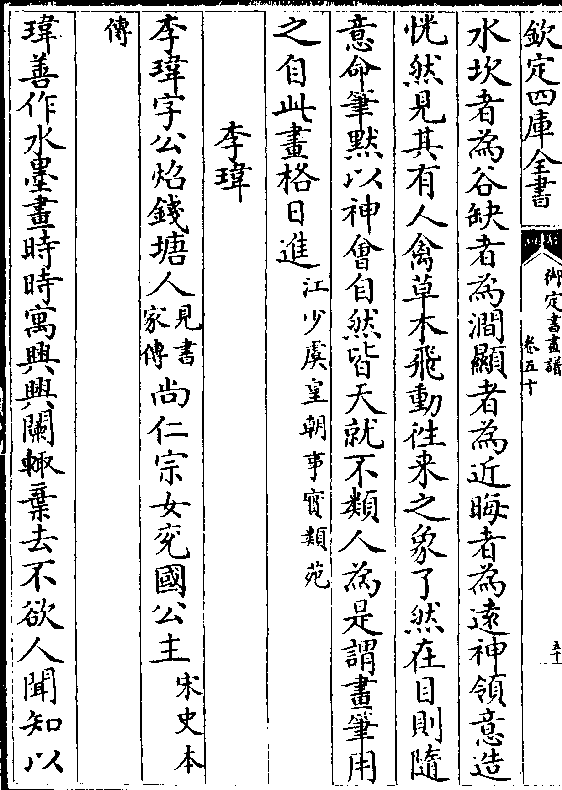 欽定四庫全書
御定書畫譜
卷五十
五十一
水坎者為谷缺者為澗顯者為近晦者為遠神領意造
恍然見其有人禽草木飛動徃来之象了然在目則隨
意命筆黙以神會自然皆天就不類人為是謂畫筆用
之自此畫格日進江少虞皇朝事實類苑
李瑋
李瑋字公炤錢塘人見書家傳尚仁宗女兖國公主宋史本
傳
瑋善作水墨畫時時寓興興闌輙棄去不欲人聞知以